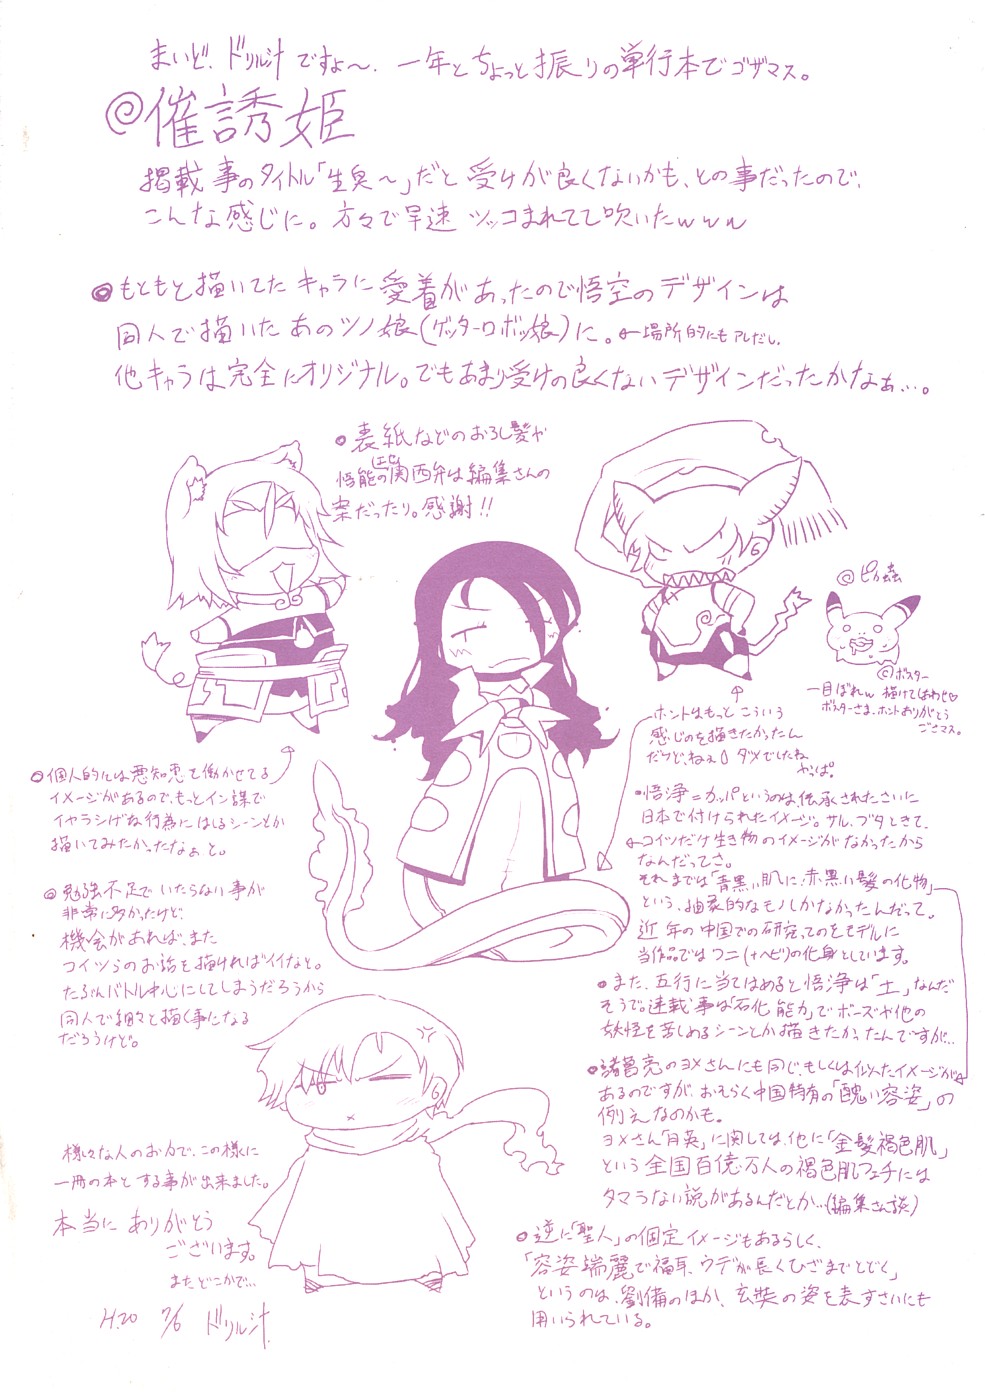 まいど、ドリル汁ですよ～、一年とちょっと振りの単行本でゴザマス。
@催誘姫
掲載事のタイトル「生臭～」だと受けが良くないかも、との事だったので、
こんな感じに。方々で早速ツッコまれてて吹いたwww
◎もともと描いてたキャラに愛着があったので悟空のデザインは
同人で描いたあのツノ娘(ゲッターロボッ娘)に。←場所的にもアレだし、
他キャラは完全にオリジナル。でもあまり受けの良くないデザインだったかなぁ…。
◎表紙などのおろし髪や
悟能の(エセ)関西弁は編集さんの
案だったり。感謝!!
@ピカ蟲
@ボスター
一目ぼれw 描けてしあわせ♡
ボスターさま、ホントありがとう
ごさマス。
ホントはもっとこういう
感じのを描きたかったん
だけど、ねぇ。ダメでしたね
やっぱ。
◎個人的には悪知恵を働かせてる
イメージがあるので、もっとイン謀で
イヤラシげな行為にはしるシーンとか
描いてみたかったなぁと。
・悟浄=カッパというのは、伝承されたさいに
日本で付けられたイメージ。サル、ブタときて、
←コイツだけ生き物のイメージがなかったから
なんだってさ。
それまでは「青黒い肌に、赤黒い髪の化物」
という、抽象的なモノしかなかったんだって。
近年の中国での研究、てのをモデルに
当作品ではワニ(+ヘビ)の化身としています。
◎勉強不足でいたらない事が
非常に多かったけど、
機会があれば、また
コイツらのお話を描ければイイなと。
たぶんバトル中心にしてしまうだろうから
同人で細々と描く事になる
だろうけど。
・また、五行に当てはめると悟浄は「土」なんだ
そうで。連載事は「石化能力」でボーズや他の
妖怪を苦しめるシーンとか描きたかったんですが…
・諸葛亮のヨメさんにも同じ、もしくは似たイメージが
あるのですが、おそらく中国特有の「醜い容姿」の
例えなのかも。
ヨメさん「月英」に関しては、他に「金髪褐色肌」
という全国百億万人の褐色肌フェチには
タマラない説があるんだとか…(編集さん談)
◎逆に「聖人」の固定イメージもあるらしく、
「容姿端麗で福耳、ウデが長くひざまでとどく」
というのは、劉備のほか、玄奘の姿を表すさいにも
用いられている。
様々な人のお力で、この様に
一冊の本とする事が出来ました。
本当にありがとう
ございます。
またどこかで…
H.20 7/6 ドリル汁